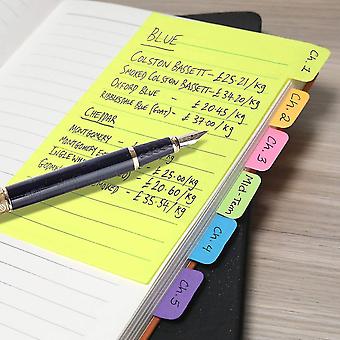 BLUE
COLSTON BASSETT - £25.21/kg
SMOKED COLSTON BASSETT - £34.20/kg
OXFORD BLUE - £20.45/kg
RIBBLESDALE BLUE (GOAT) - £37.00/kg
CHEDDAR
MONTGOMERY
MONTGOMERY - £25.00/kg
INGLEWH - £20.60/kg
- £35.54/kg
Ch. 1
Ch. 2
Ch. 3
Mid-Term
Ch. 4
Ch. 5